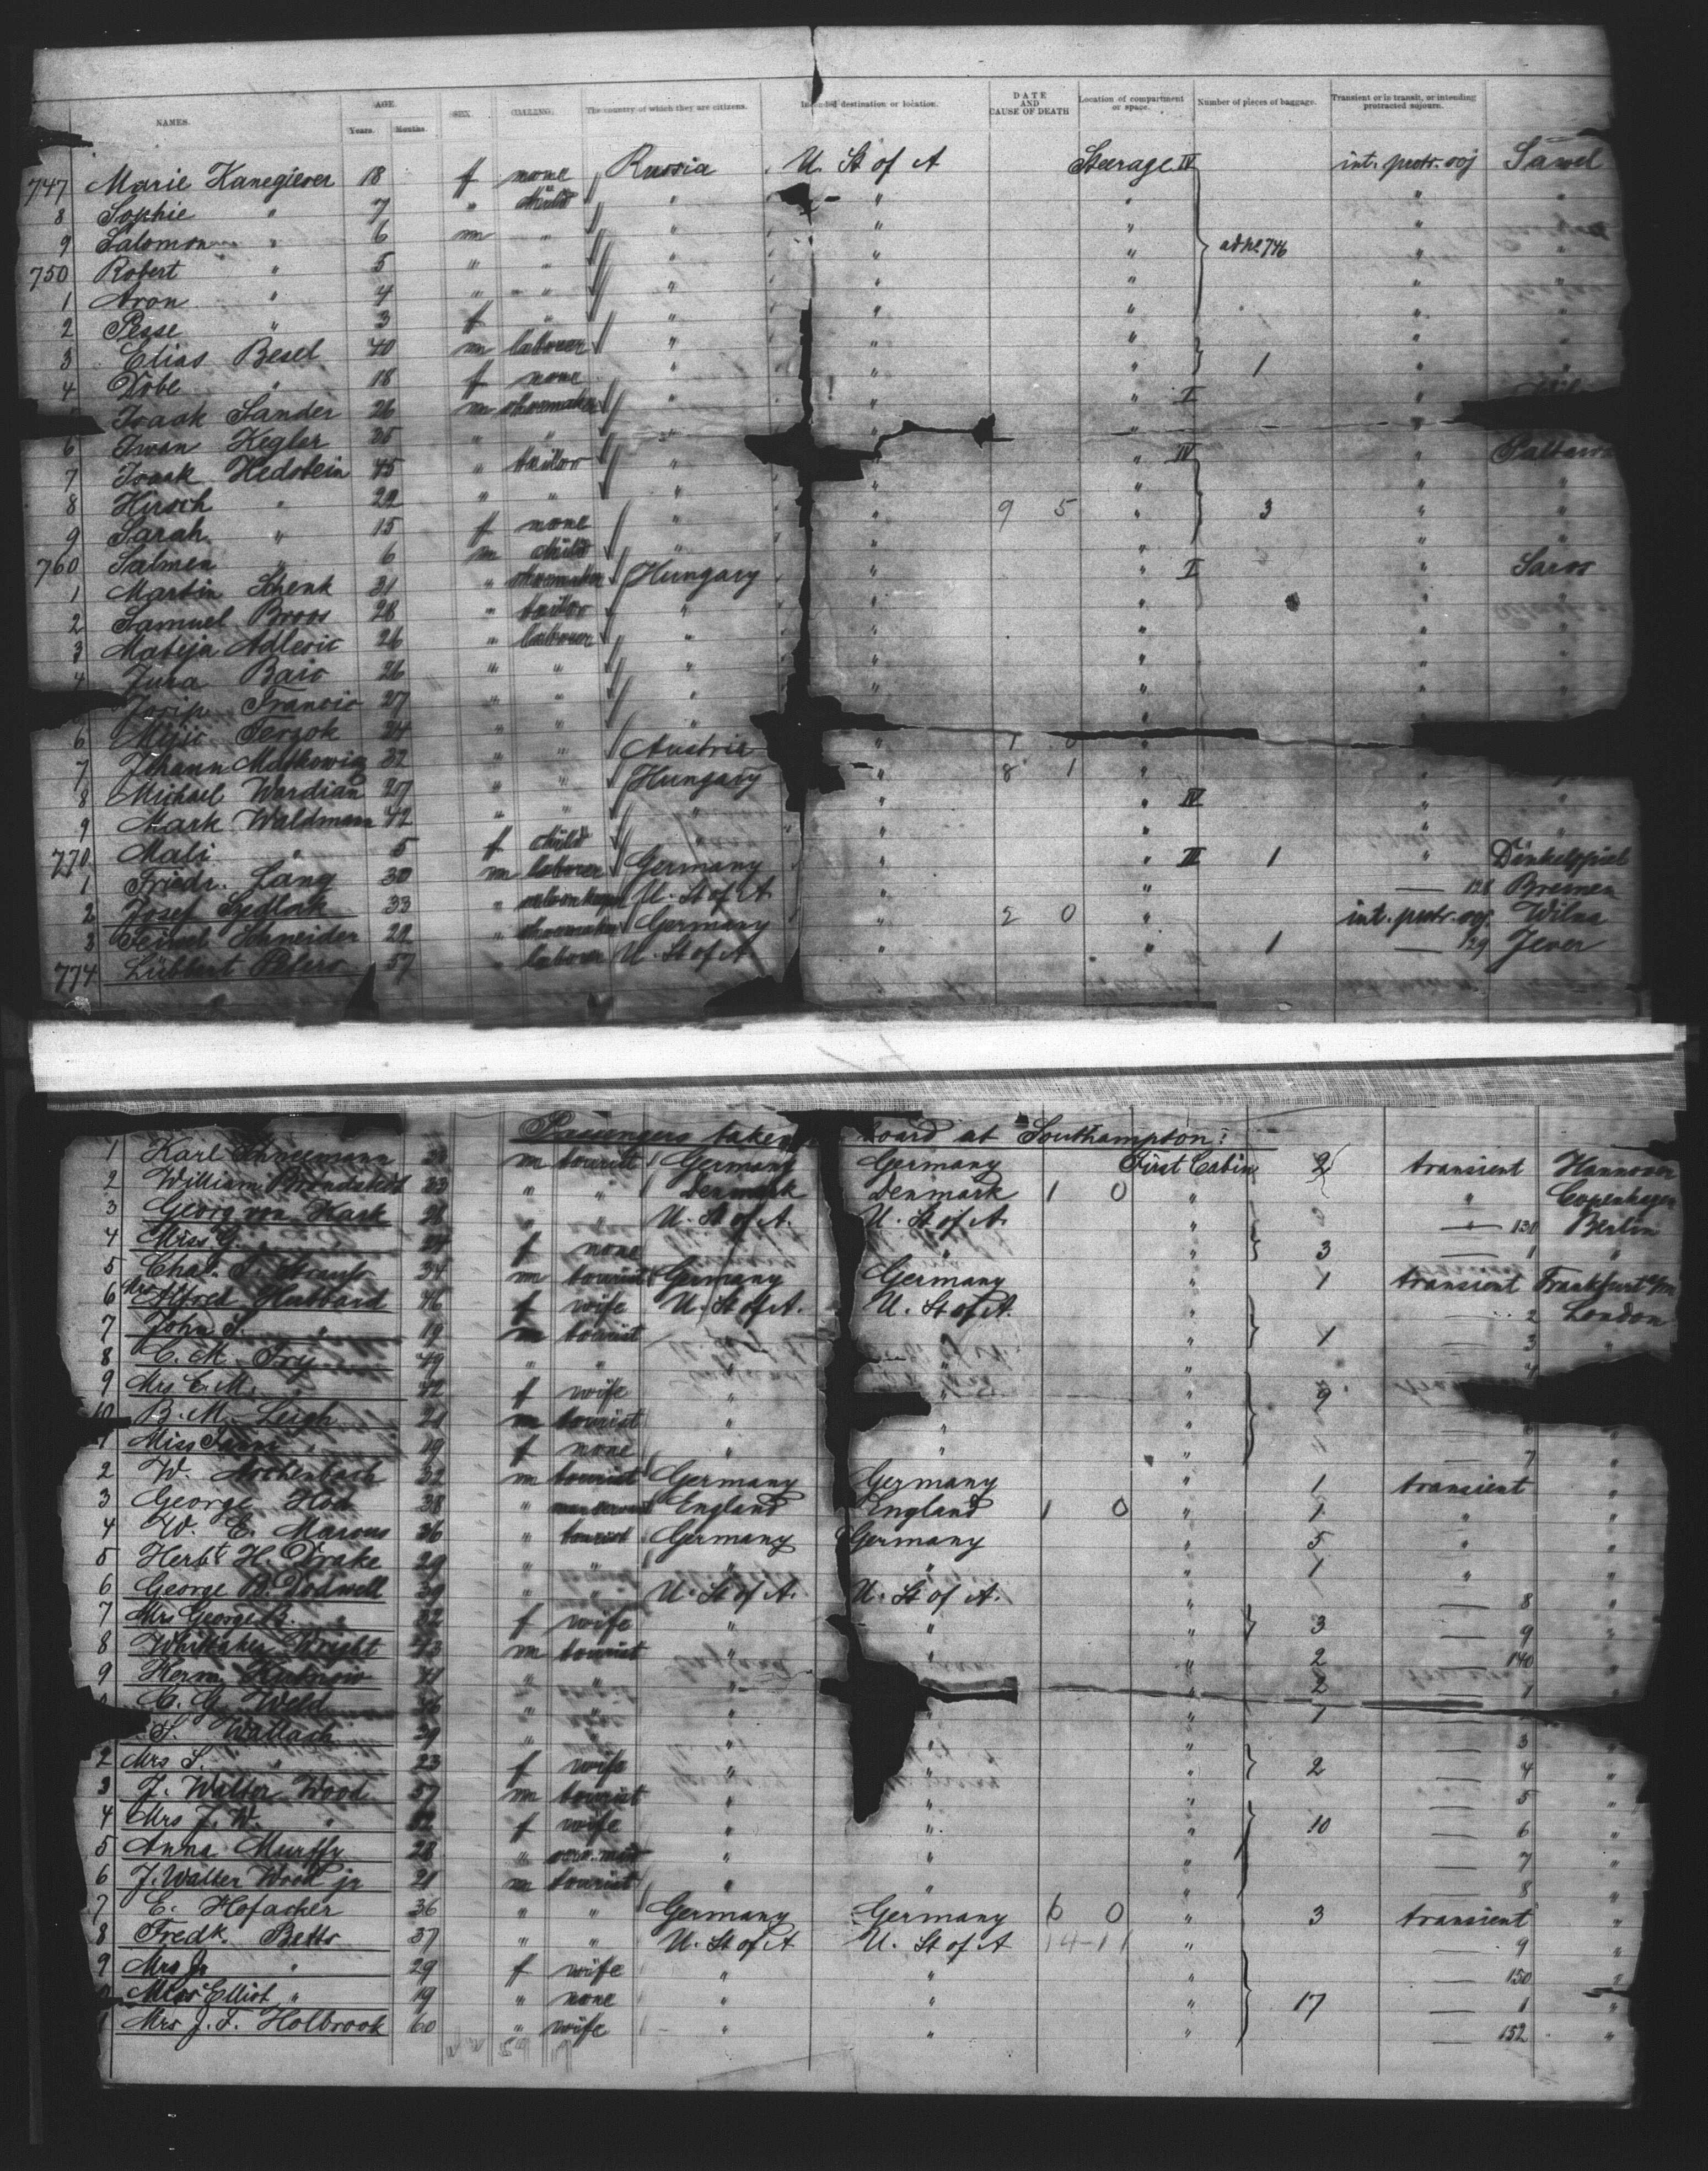 NAMES. AGE. Years. Months. SEX. CALLING. The country of which they are citizens. Intended destination or location. DATE AND CAUSE OF DEATH Location of compartment or space. Number of pieces of baggage. Transient or in transit, or intending protracted sojourn.
747 Marie Kanegieser 18 f none Russia U. St of A Steerage IV int. protr. soj
8 Sophie " 7 " child " " " "
9 Salomon " 6 m " " " " "
750 Robert " 5 " " " " " "
1 Aron " 4 " " " " " "
2 Pesse " 3 f " " " " "
3 Elias Besel 40 m labourer " " " 1 "
4 Dobe " 18 f none " " " "
Isaak Sander 26 m shoemaker " " " I "
6 Iwan Kegler " " " " "
7 Isaak Hedstein 45 " tailor " " " IV "
8 Hirsch " 22 " " " " " "
9 Sarah " 15 f none " " 9 5 " 3 "
760 Salmen " 6 m child " " " "
1 Martin Schenk 31 " shoemaker Hungary " " I "
2 Samuel Broos 28 " tailor " " " "
3 Mateja Adlesic 26 " labourer " " " "
4 Jura Baic 26 " " " " "
Josip Francic 27 " " " " "
6 Mijic Tergok 24 " " " "
7 Johann Matkowic 32 " " Austria "
8 Michael Wardian 27 " " Hungary " 8 1 "
9 Mark Waldmann 42 " " " " " IV "
770 Mali " 5 f child " " " "
1 Friedr. Lang 30 m labourer Germany " " II 1 " Dinkelspiel
2 Josef Sedlak 33 " U. St of A. " " — 128 Bremen
3 Feiwel Schneider 22 " shoemaker Germany " 2 0 " int. protr. soj. Wilna
774 Lübbert Peters 57 " labourer U. St of A " " 1 — 129 Jever
Passengers taken board at Southampton:
1 Karl Schneemann m tourist Germany Germany First Cabin 2 transient Hannover
2 William 33 " " Denmark Denmark 1 0 " " Copenhagen
3 Georg von " " U. St of A. U. St of A. " — 130 Berlin
4 Miss G. " f none " " " 3 — 1 "
5 Chas. S. Strauss 34 m tourist Germany Germany " 1 transient Frankfurt a/m
6 Mrs Alfred Hubbard 46 f wife U. St of A. U. St of A. " — 2 London
7 John S. " 19 m tourist " " " 1 — 3 "
8 C. M. Fry 49 " " " " " — 4
9 Mrs C. M. " 42 f wife " " " 9
10 B. M. Leigh 21 m tourist " " "
1 Miss " 19 f none " " " — 7 "
2 W. Aschenbach 32 m tourist Germany Germany " 1 transient "
3 George Hod 38 " manservant England England 1 0 " 1 " "
4 W. E. Marcus 36 " tourist Germany Germany " 5 " "
5 Herbt H. Drake 29 " " " " " 1 " "
6 George B. Dodwell 39 " " U. St of A. U. St of A. " — 8 "
7 Mrs George B. " 32 f wife " " " 3 — 9 "
8 Whittaker Wright 43 m tourist " " " 2 — 140 "
9 Herm. 41 " " " " " 2 — 1 "
C. G. Weld 36 " " " " " 1
S. Wallach 29 " " " " " — 3 "
2 Mrs S. " 23 f wife " " " 2 — 4 "
3 J. Walter Wood 57 m tourist " " " — 5 "
4 Mrs J. W. " 52 f wife " " " 10 — 6 "
5 Anna Murffy 28 " " " " — 7 "
6 J. Walter Wood jr 21 m tourist " " " — 8 "
7 E. Hofacker 36 " " Germany Germany 6 0 " 3 transient "
8 Fredk. Betts 37 " " U. St of A U. St of A 14-11 " — 9 "
9 Mrs Jr " 29 f wife " " " — 150 "
Miss Elliot " 19 " none " " " 17 — 1 "
1 Mrs J. F. Holbrook 60 " wife " " " — 152 "